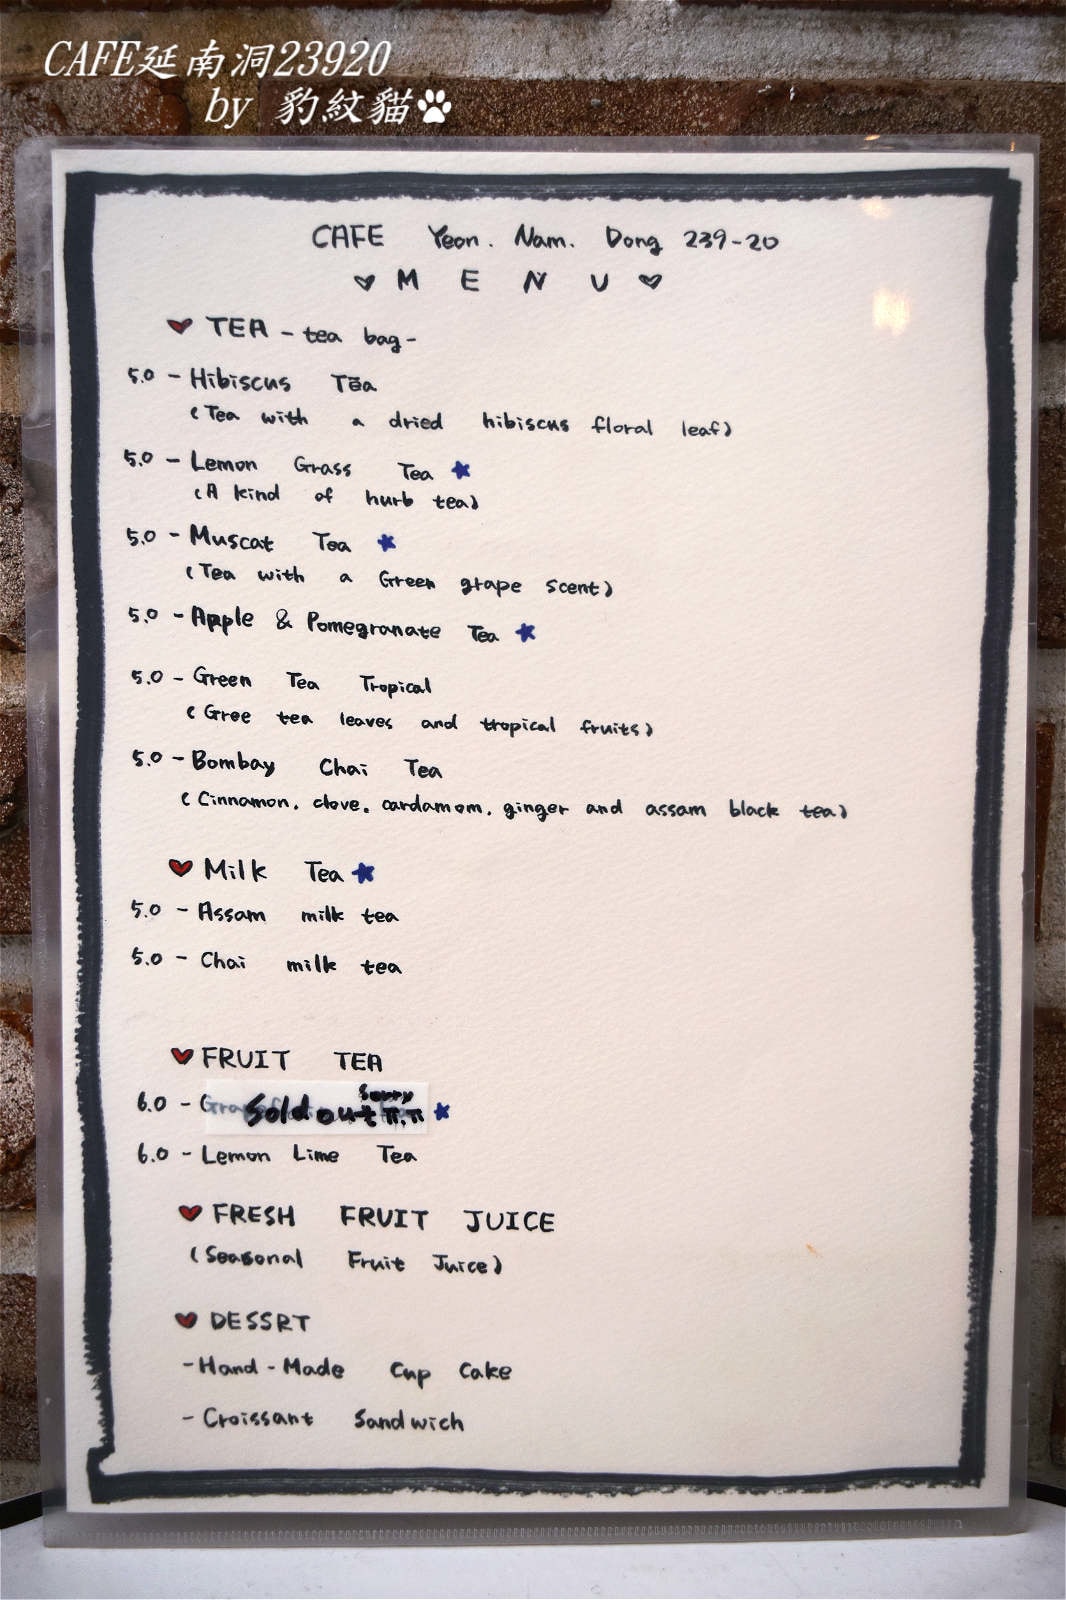 CAFE延南洞23920
by 豹紋貓
CAFE Yeon. Nam. Dong 239-20
MENU
TEA - tea bag -
5.0 - Hibiscus Tea
(Tea with a dried hibiscus floral leaf)
5.0 - Lemon Grass Tea
(A kind of hurb tea)
5.0 - Muscat Tea
(Tea with a Green grape scent)
5.0 - Apple & Pomegranate Tea
5.0 - Green Tea Tropical
(Gree tea leaves and tropical fruits)
5.0 - Bombay Chai Tea
(Cinnamon. clove. cardamom. ginger and assam black tea)
Milk Tea
5.0 - Assam milk tea
5.0 - Chai milk tea
FRUIT TEA
6.0 - Sold out Sorry ㅠ.ㅠ
6.0 - Lemon Lime Tea
FRESH FRUIT JUICE
(Seasonal Fruit Juice)
DESSRT
- Hand-Made Cup Cake
- Croissant Sandwich